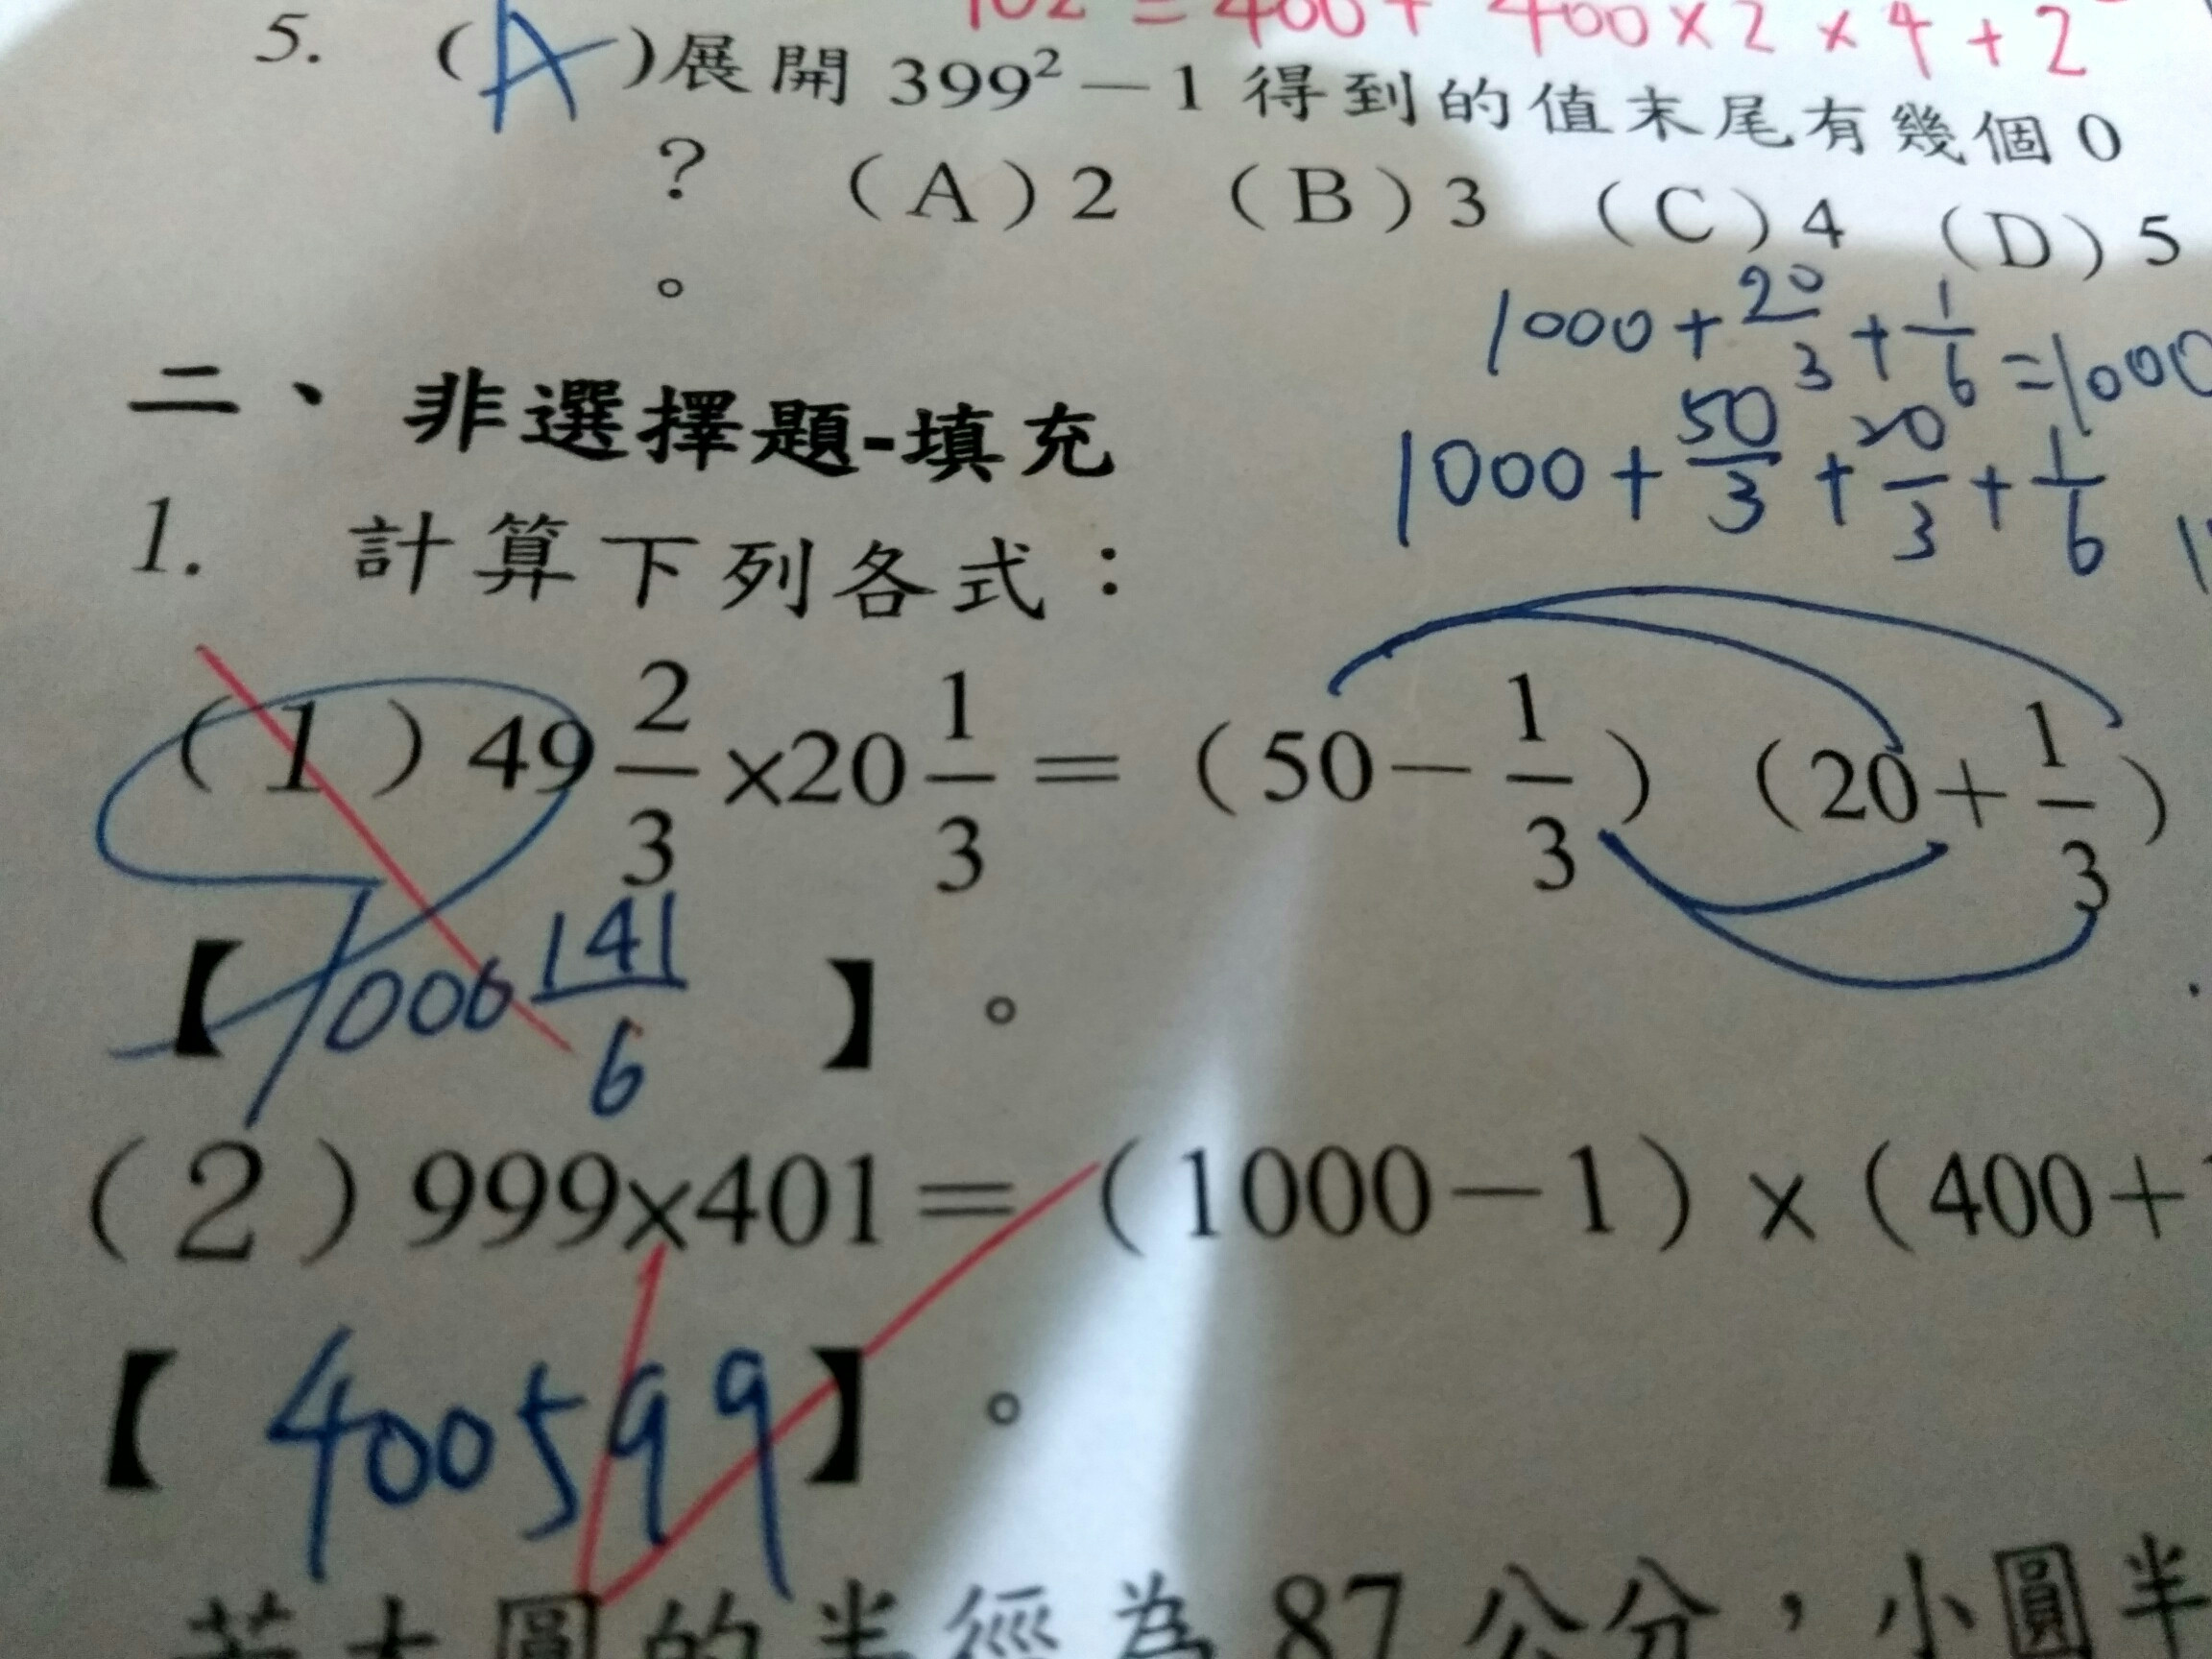 102 = 400 + 400×2×4+2
5. (A)展開 399²－1 得到的值末尾有幾個 0
? (A)2 (B)3 (C)4 (D)5
。
1000+20/3+1/6=1000
二、非選擇題-填充
1000+50/3+20/3+1/6
1. 計算下列各式：
(1) 49 2/3×20 1/3＝(50－1/3) (20＋1/3)
【 1006 141/6 】。
(2) 999×401＝(1000－1)×(400＋
【 400599 】。
若大圓的半徑為 87 公分，小圓半